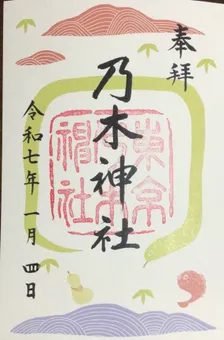 奉拝
乃木神社
令和七年一月四日
東京
乃木
神社